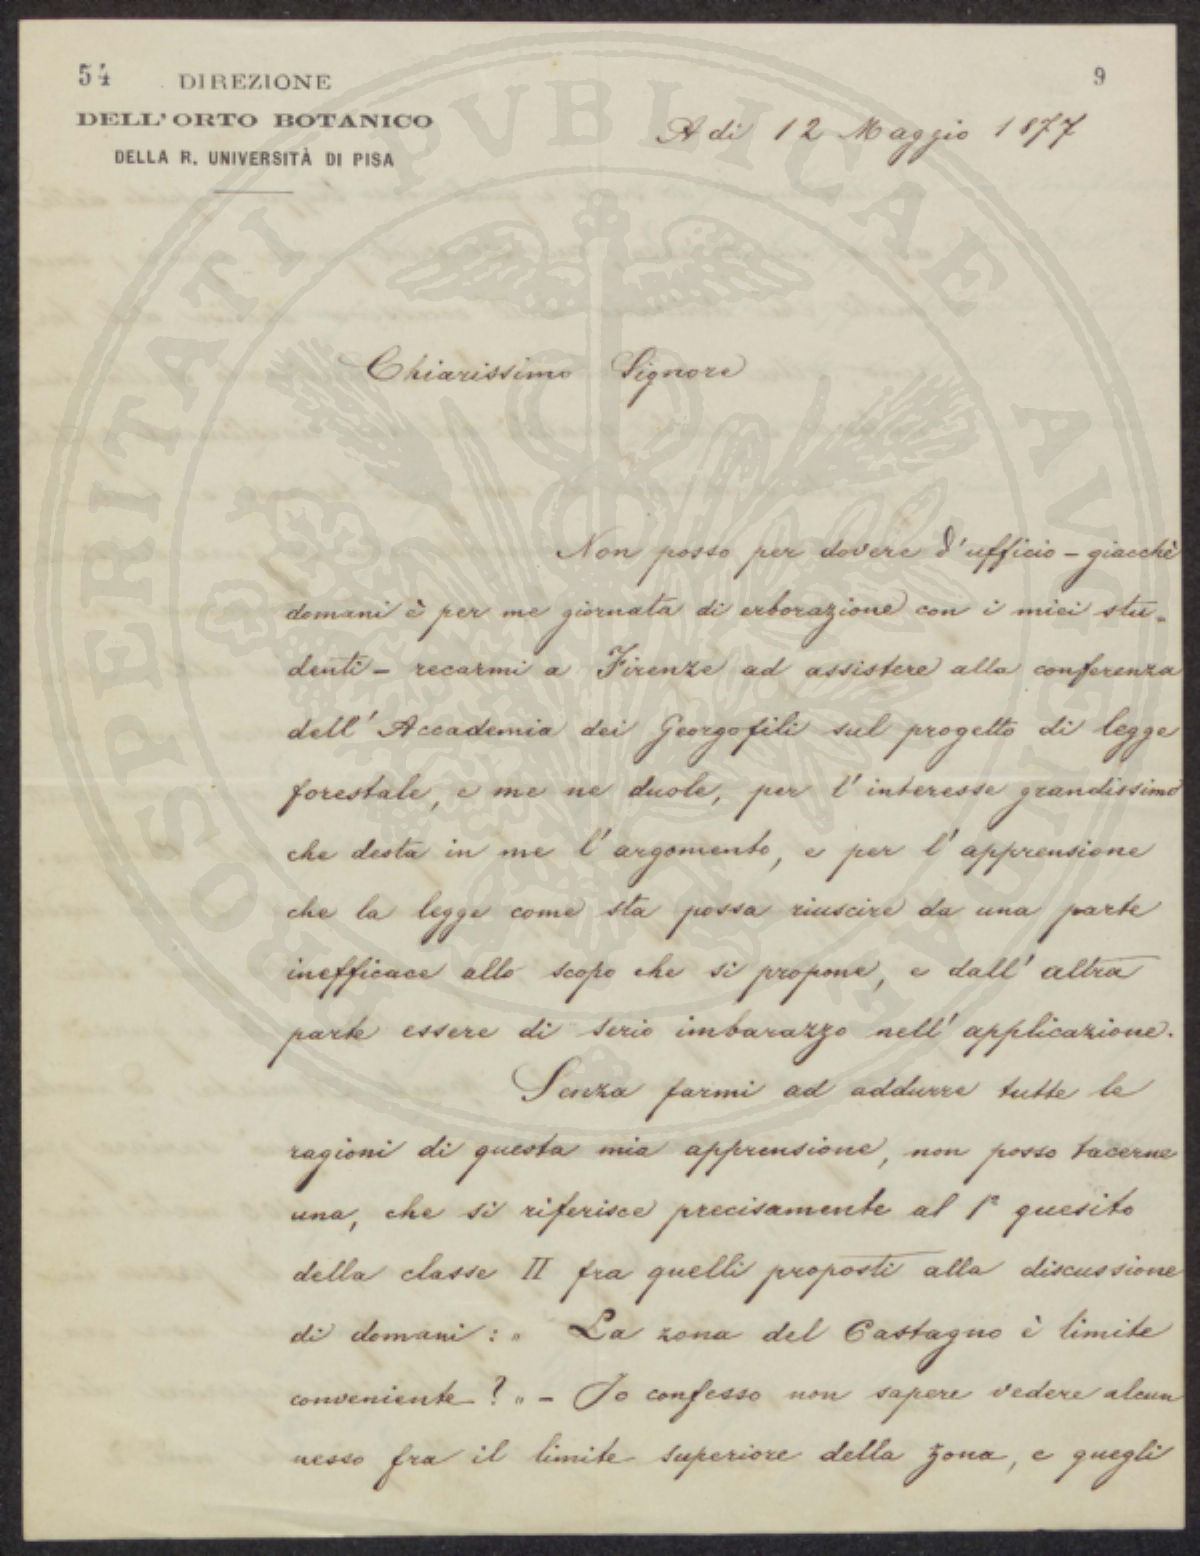 54
9
DIREZIONE
DELL' ORTO BOTANICO
DELLA R. UNIVERSITÀ DI PISA
A di 12 Maggio 1877
Chiarissimo Signore
Non posso per dovere d'ufficio – giacchè
domani è per me giornata di erborazione con i miei stu-
denti – recarmi a Firenze ad assistere alla conferenza
dell' Accademia dei Georgofili sul progetto di legge
forestale, e me ne duole, per l' interesse grandissimo
che desta in me l' argomento, e per l' apprensione
che la legge come sta possa riuscire da una parte
inefficace allo scopo che si propone, e dall' altra
parte essere di serio imbarazzo nell' applicazione.
Senza farmi ad addurre tutte le
ragioni di questa mia apprensione, non posso tacerne
una, che si riferisce precisamente al 1° quesito
della classe II fra quelli proposti alla discussione
di domani: " La zona del Castagno è limite
conveniente? " – Io confesso non sapere vedere alcun
nesso fra il limite superiore della zona, e quegli
PROSPERITATI PVBLICAE AVGENDAE